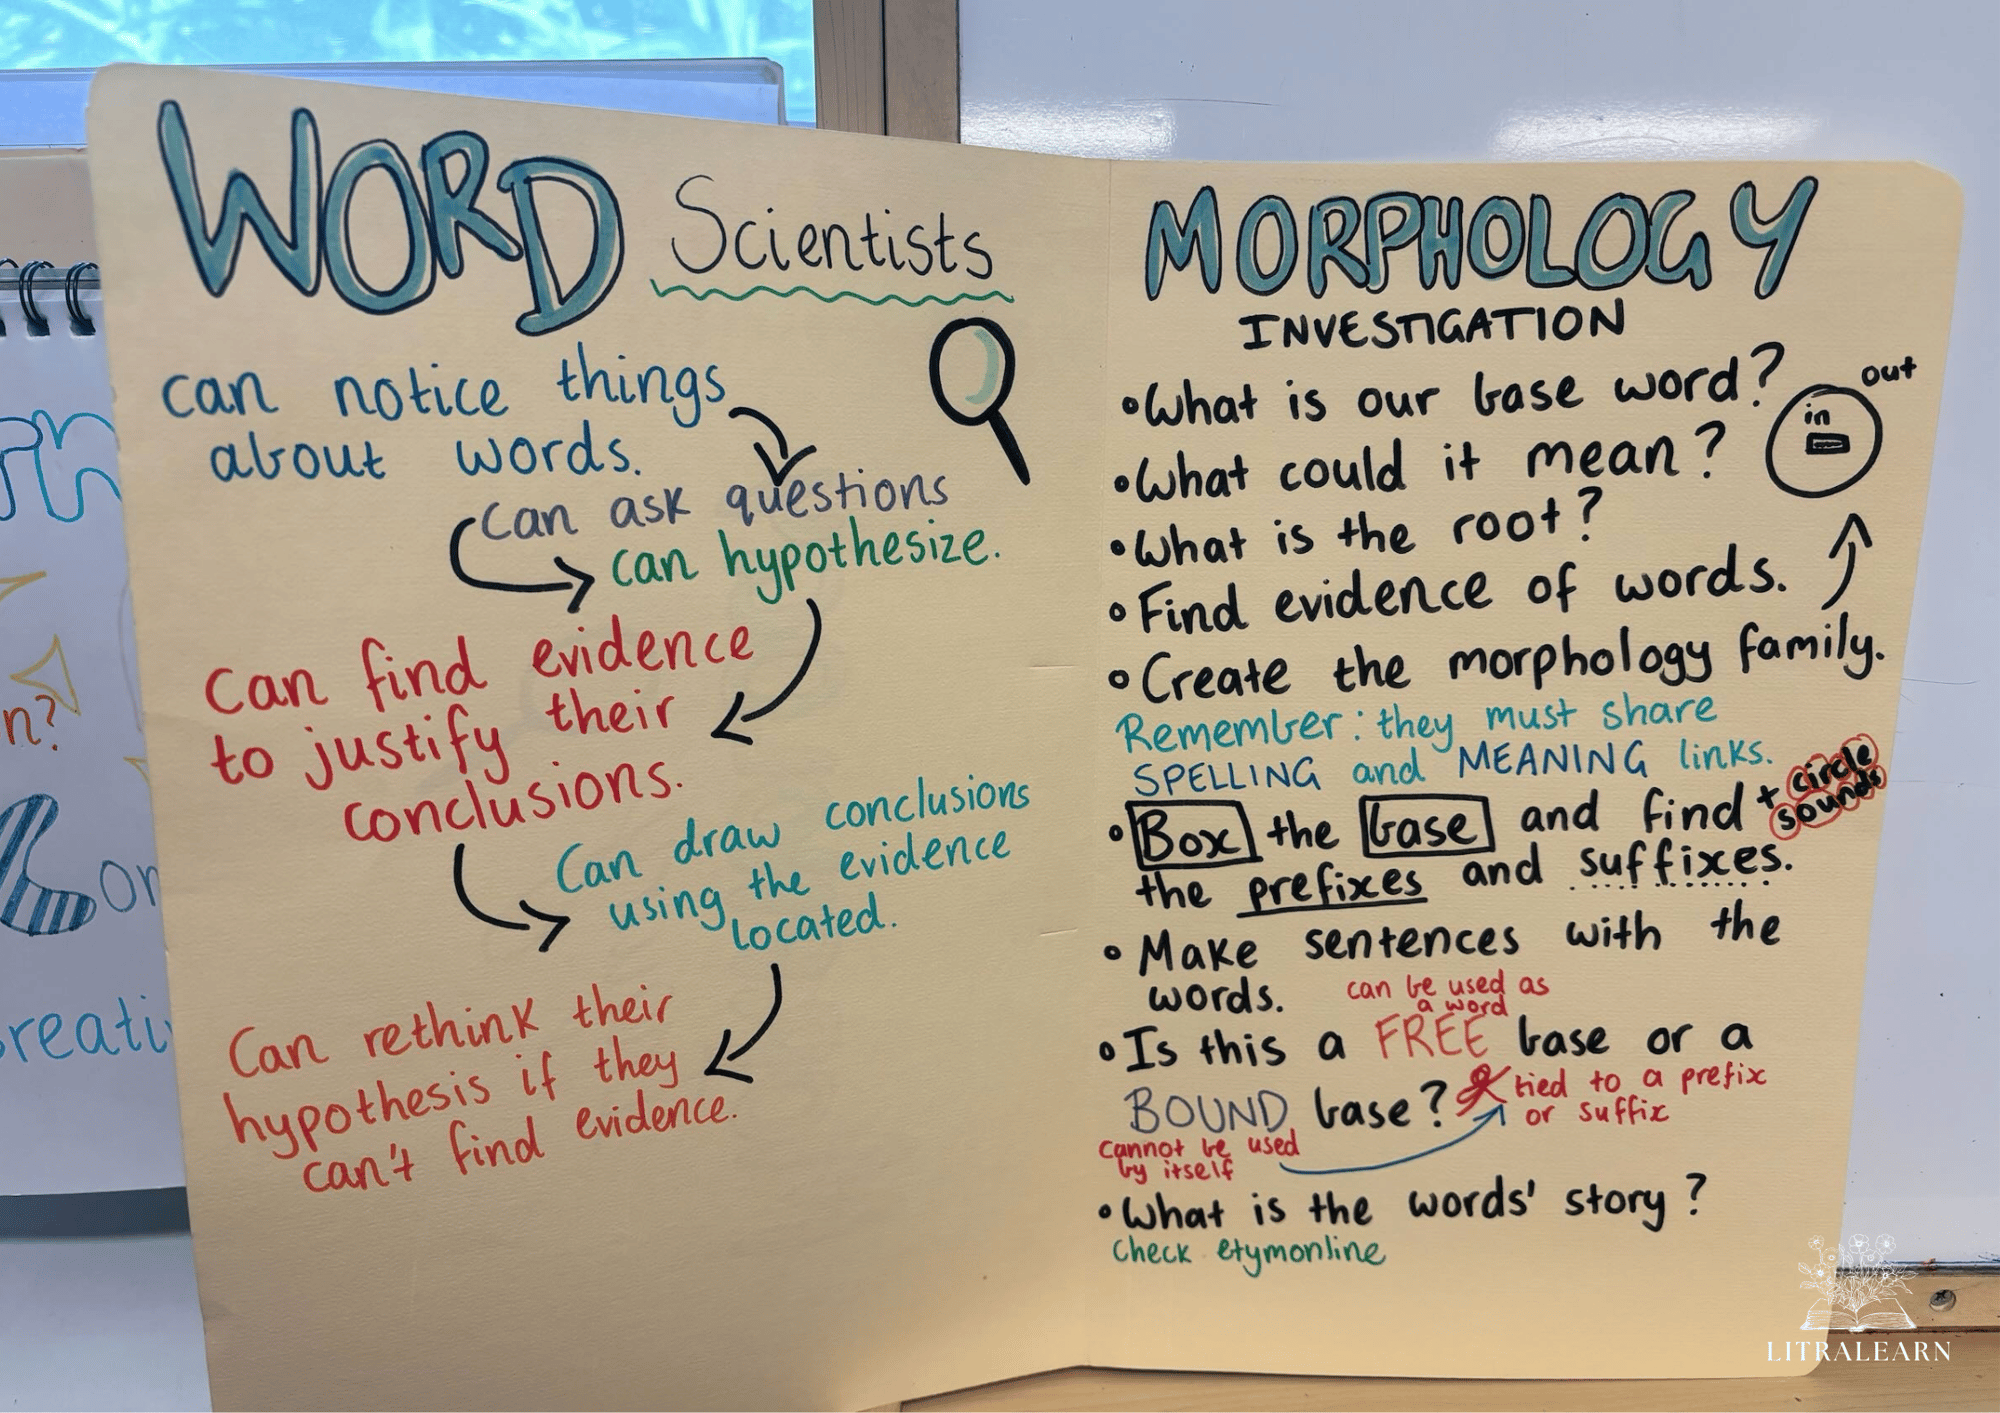 WORD Scientists
can notice things
about words.
can ask questions
can hypothesize.
Can find evidence
to justify their
conclusions.
Can draw conclusions
using the evidence
located.
Can rethink their
hypothesis if they
can't find evidence.
MORPHOLOGY
INVESTIGATION
•What is our base word?
out
in
•What could it mean?
•What is the root?
•Find evidence of words.
•Create the morphology family.
Remember: they must share
SPELLING and MEANING links.
•Box the base and find + circle
sounds
the prefixes and suffixes.
•Make sentences with the
words.
can be used as
a word
•Is this a FREE base or a
BOUND base?
tied to a prefix
or suffix
cannot be used
by itself
•What is the words' story?
check etymonline
n?
on
reati
LITRALEARN